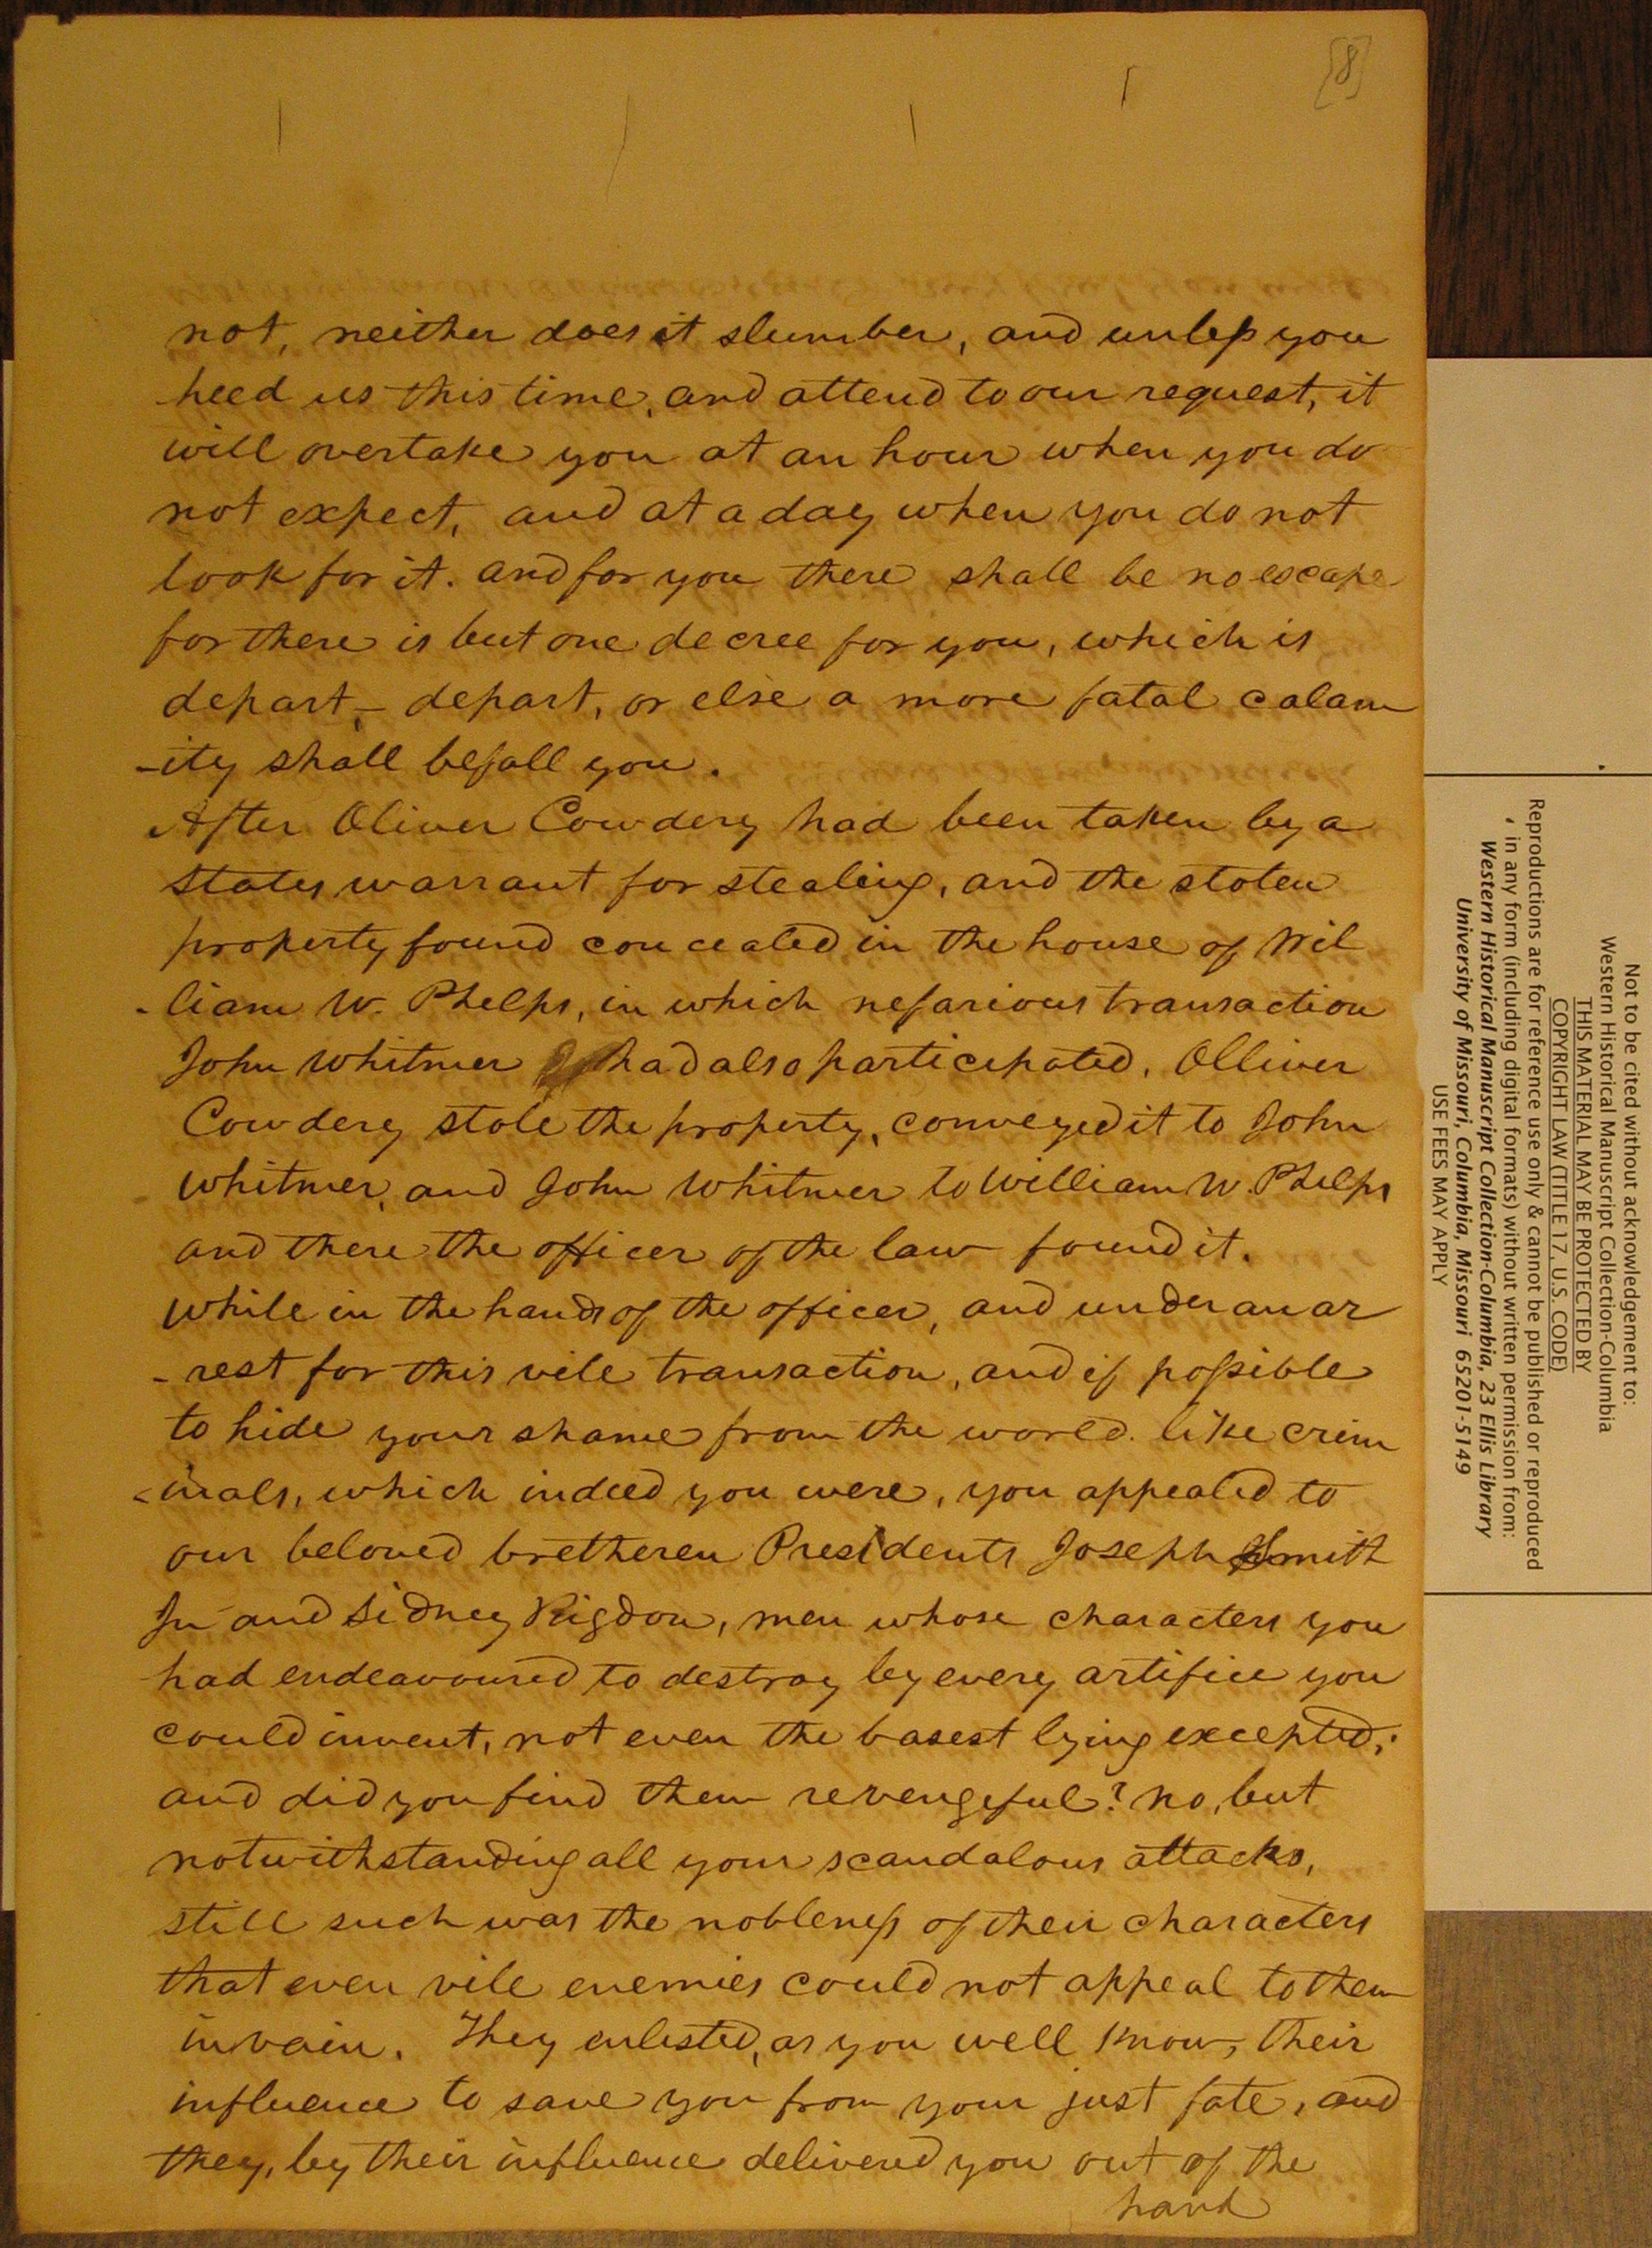 [8]
not, neither does it slumber, and unless you
heed us this time, and attend to our request, it
will overtake you at an hour when you do
not expect, and at a day when you do not
look for it. and for you there shall be no escape
for there is but one decree for you, which is
depart, - depart, or else a more fatal calam
-ity shall befall you.
After Oliver Cowdery had been taken by a
states warrant for stealing, and the stolen
property found concealed in the house of Wil
-liam W. Phelps, in which nefarious transaction
John Whitmer had also participated, Olliver
Cowdery stole the property, conveyed it to John
Whitmer, and John Whitmer to William W. Phelps
and there the officer of the law found it.
while in the hands of the officer, and under an ar
-rest for this vile transaction, and if possible
to hide your shame from the world. like crim
-inals, which indeed you were, you appealed to
our beloved bretheren Presidents Joseph Smith
Jr and Sidney Rigdon, men whose characters you
had endeavoured to destroy by every artifice you
could invent, not even the basest lying excepted;
and did you find them revengeful? no, but
notwithstanding all your scandalous attacks,
still such was the nobleness of their characters
that even vile enemies could not appeal to them
in vain. They enlisted, as you well know, their
influence to save you from your just fate, and
they, by their influence delivered you out of the
hand
Not to be cited without acknowledgement to:
Western Historical Manuscript Collection-Columbia
THIS MATERIAL MAY BE PROTECTED BY
COPYRIGHT LAW (TITLE 17, U.S. CODE)
Reproductions are for reference use only & cannot be published or reproduced
in any form (including digital formats) without written permission from:
Western Historical Manuscript Collection-Columbia, 23 Ellis Library
University of Missouri, Columbia, Missouri 65201-5149
USE FEES MAY APPLY